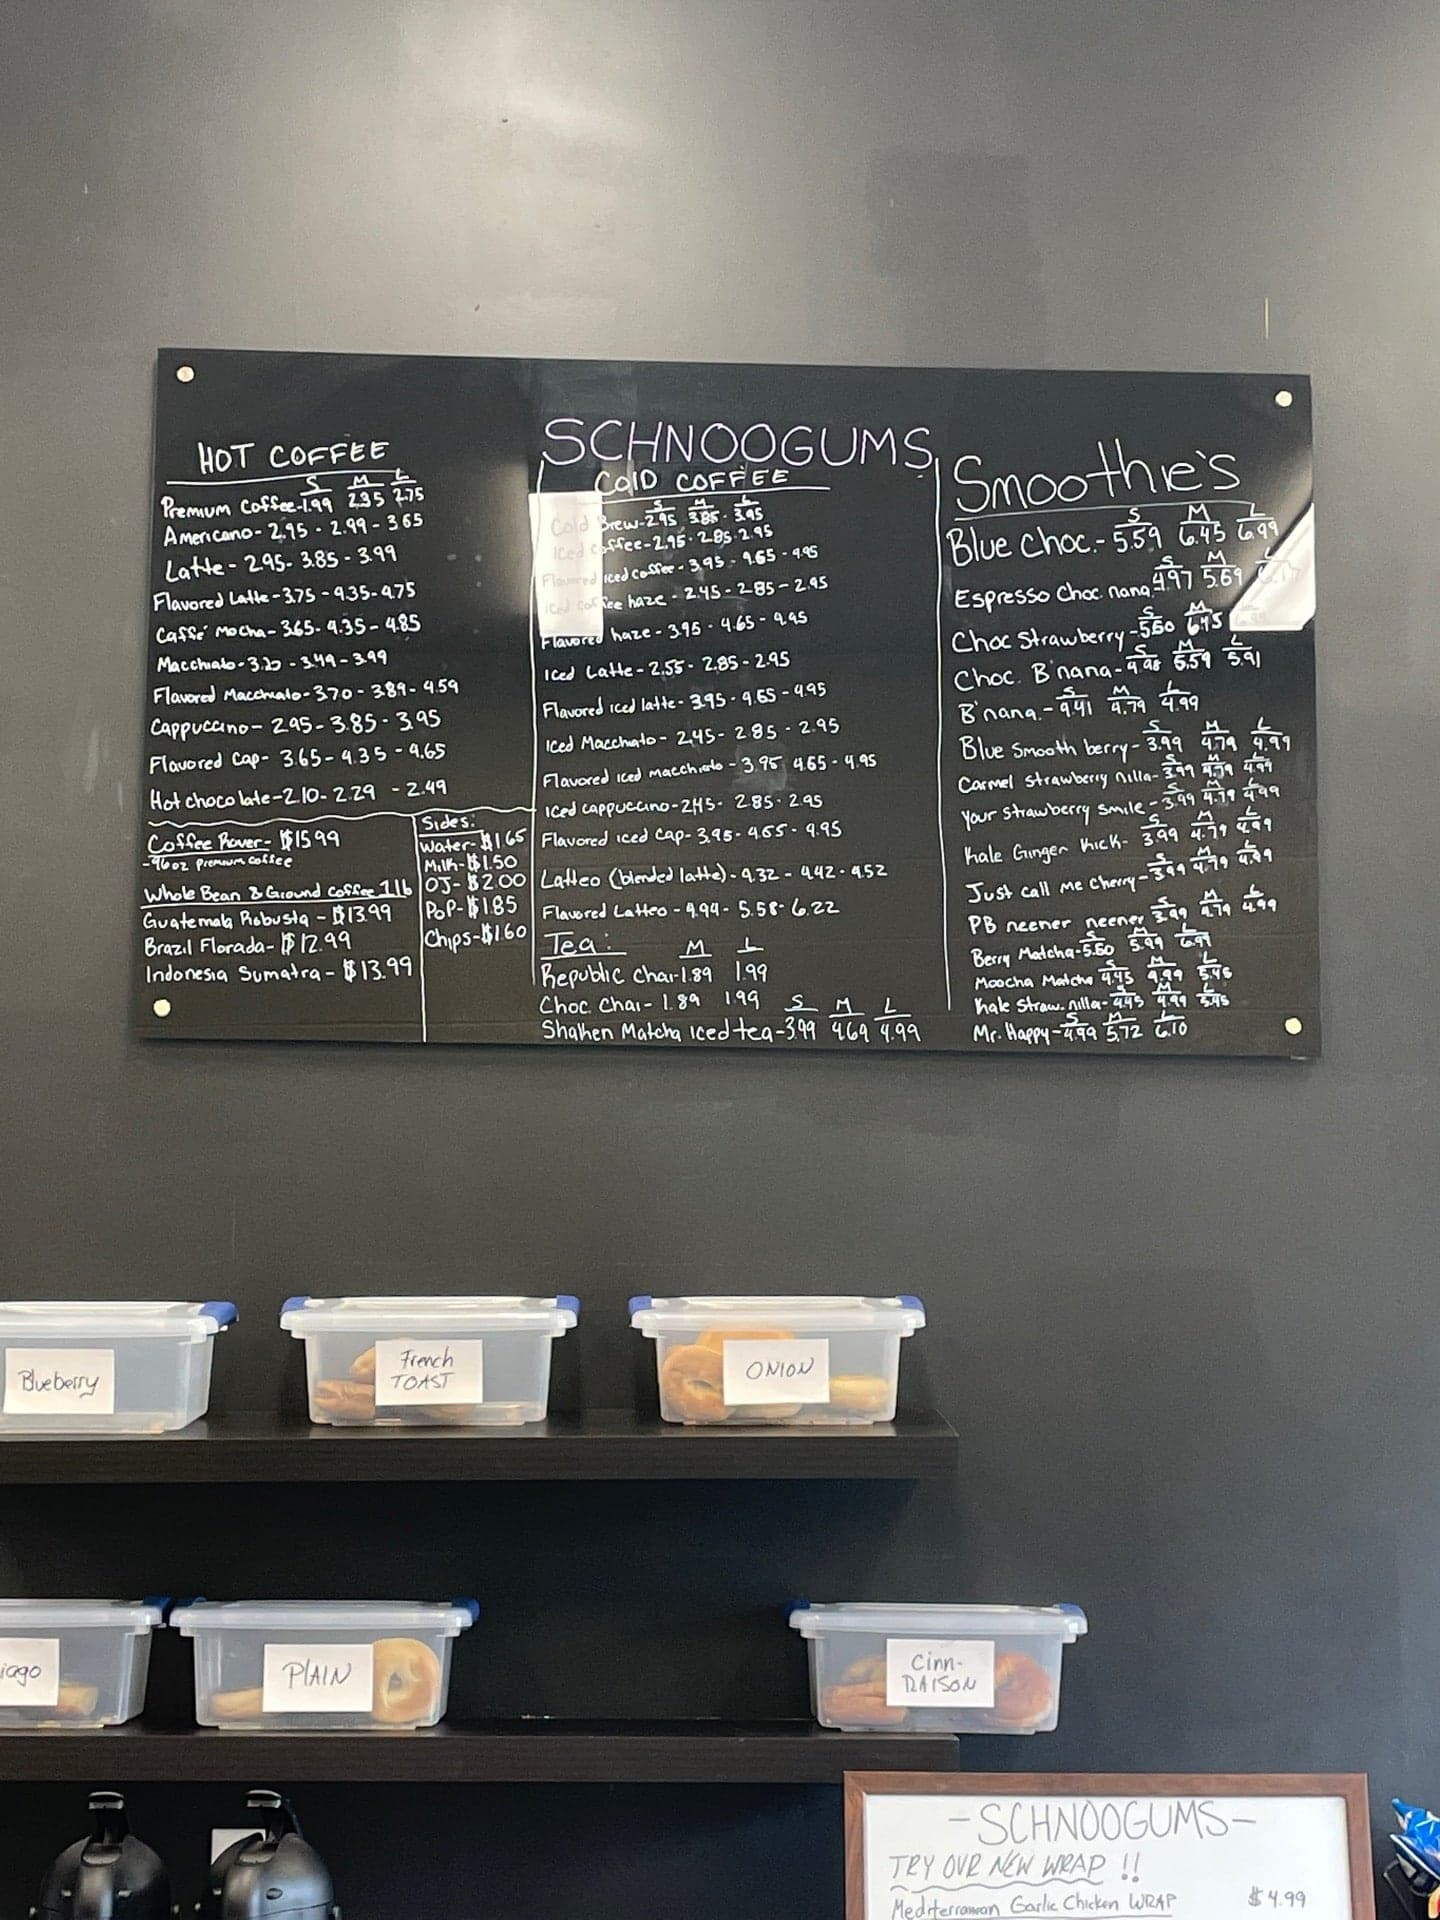 SCHNOOGUMS
HOT COFFEE
S M L
Premium Coffee-1.99 2.35 2.75
Americano- 2.95 - 2.99 - 3.65
Latte - 2.95- 3.85 - 3.99
Flavored Latte - 3.75 - 4.35- 4.75
Caffé Mocha- 3.65- 4.35 - 4.85
Macchiato- 3.20 - 3.49 - 3.99
Flavored Macchiato- 3.70 - 3.89- 4.59
Cappuccino- 2.95- 3.85- 3.95
Flavored Cap- 3.65- 4.35 - 4.65
Hot chocolate-2.10- 2.29 - 2.49
Coffee Rover- $15.99
-96oz premium coffee
Whole Bean & Ground Coffee 1 lb
Guatemala Robusta - $13.99
Brazil Florada- $12.99
Indonesia Sumatra - $13.99
Sides:
Water-$1.65
Milk-$1.50
OJ- $2.00
PoP-$1.85
Chips-$1.60
Cold COFFEE
S M L
Cold Brew-2.95 3.85 - 3.95
Iced coffee-2.95- 2.85-2.95
Flavored iced coffee - 3.95 - 4.65 - 4.95
Iced coffee haze - 2.45 - 2.85 - 2.95
Flavored haze - 3.95 - 4.65 - 4.95
Iced Latte - 2.55- 2.85 - 2.95
Flavored iced latte- 3.95 - 4.65 - 4.95
Iced Macchiato- 2.45- 2.85 - 2.95
Flavored iced macchiato - 3.95 4.65 - 4.95
Iced cappuccino-2.45- 2.85- 2.95
Flavored iced Cap- 3.95- 4.65- 4.95
Latteo (blended latte) - 4.32 - 4.42 - 4.52
Flavored Latteo - 4.94- 5.58- 6.22
Tea: M L
Republic Chai-1.89 1.99
Choc. Chai- 1.89 1.99 S M L
Shaken Matcha iced tea-3.99 4.69 4.99
Smoothie's
S M L
Blue Choc.- 5.59 6.45 6.99
S M L
Espresso Choc. nana 4.97 5.69
S M
Choc Strawberry -5.60 6.45
S M L
Choc. B'nana- 4.98 5.59 5.91
S M L
B'nana.- 4.41 4.79 4.99
S M L
Blue Smooth berry- 3.99 4.79 4.99
S M L
Carmel Strawberry nilla- 3.99 4.79 4.99
S M L
Your Strawberry Smile - 3.99 4.79 4.99
S M L
Kale Ginger Kick- 3.99 4.79 4.99
S M L
Just call me Cherry- 3.99 4.79 4.99
S M L
PB neener neener 3.99 4.79 4.99
S M L
Berry Matcha-5.50 5.99 6.99
S M L
Moocha Matcha 4.45 4.99 5.45
S M L
Kale Straw. nilla- 4.45 4.99 5.45
S M L
Mr. Happy- 4.99 5.72 6.10
Blueberry
French
TOAST
ONION
iago
PlAIN
Cinn-
RAISON
-SCHNOOGUMS-
TRY OUR NEW WRAP !!
Mediterranean Garlic Chicken WRAP $4.99